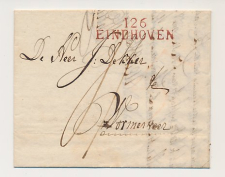 126
EINDHOVEN
De Heer J: Dekker
te
Wormerveer